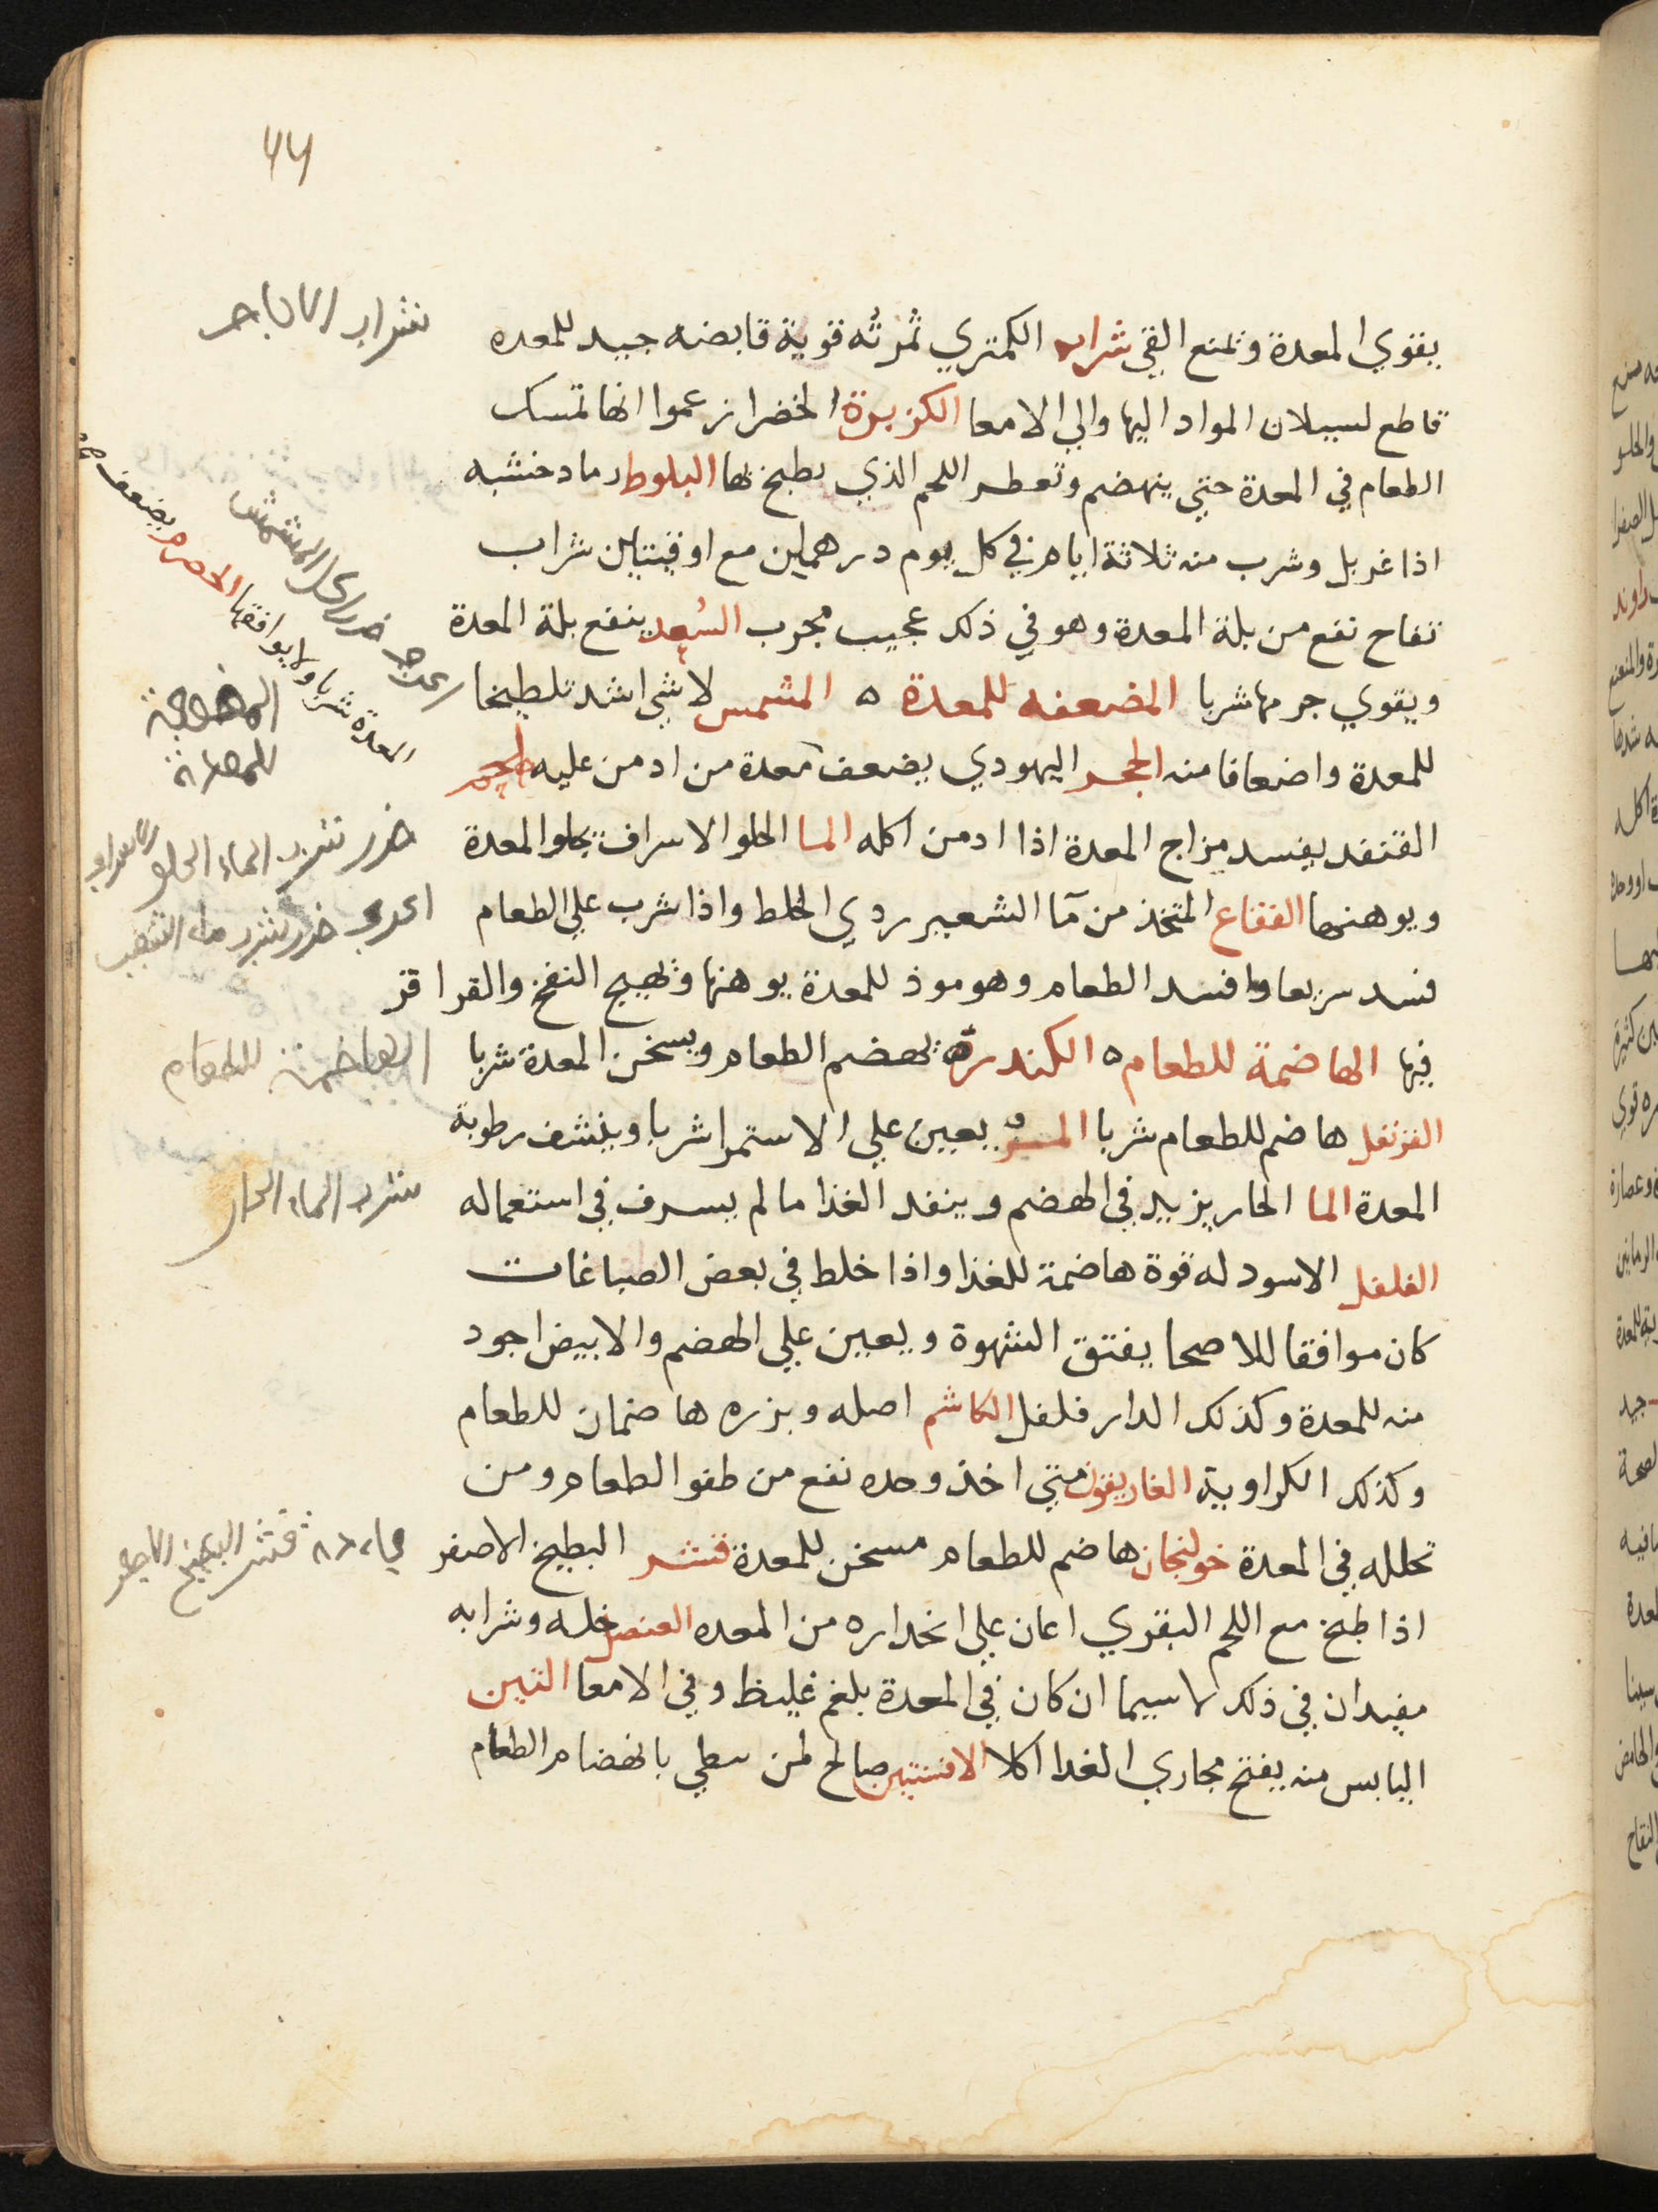 44
يقوي المعدة وتمنع القي شراب الكمثري ثمرته قوية قابضه جيد للمعده
قاطع لسيلان المواد اليها والي الامعا الكزبرة الخضرا زعموا انها تمسك
الطعام في المعدة حتي ينهضم وتعطر اللحم الذي يطبخ بها البلوط رماد خشبه
اذا غربل وشرب منه ثلاثة ايام في كل يوم درهمين مع اوقيتين شراب
تفاح نفع من بلة المعدة وهو في ذلك عجيب مجرب السُعد ينفع بلة المعدة
ويقوي جرمها شربا المضعفه للمعدة ه المشمس لا شي اشد تلطيخا
للمعدة واضعافا منه الحجر اليهودي يضعف معدة من ادمن عليه لحم
القنفد يفسد مزاج المعدة اذا ادمن اكله الما الحلو الاسراف يحلو المعدة
ويوهنها الفقاع المتخذ من مآ الشعير ردي الخلط واذا شرب علي الطعام
فسد سريعا وافسد الطعام وهو موذ للمعدة يوهنها وتهيج النفخ والقراقر
فيها الهاضمة للطعام ه الكندر يهضم الطعام ويسخن المعدة شربا
القرنفل هاضم للطعام شربا المر يعين علي الاستمرا شربا وينشف رطوبة
المعدة الما الحار يزيد في الهضم وينفد الغذا ما لم يسرف في استعماله
الفلفل الاسود له قوة هاضمة للغذا واذا خلط في بعض الصباغات
كان موافقا للاصحا يفتق الشهوة ويعين علي الهضم والابيض اجود
منه للمعدة وكذلك الدار فلفل الكاشم اصله وبزره هاضمان للطعام
وكذلك الكراوية الغاريقون متي اخذ وحده نفع من طفو الطعام ومن
تحلله في المعدة خولنجان هاضم للطعام مسخن للمعدة قشر البطيخ الاصفر
اذا طبخ مع اللحم البقري اعان علي انحداره من المعده العنصل خله وشرابه
مفيدان في ذلك لاسيما ان كان في المعدة بلغم غليظ وفي الامعا التين
اليابس منه يفتح مجاري الغدا اكلا الافسنتين صالح لمن بطي بانهضام الطعام
شراب
الحصرم يضعف
المعدة شربا ولا يوافقها
ضرر اكل المشمش
المضعفة
للمعدة
ضرر شرب الماء الحلو
ضرر شرب ماء الشعير
الهاضمة للطعام
شرب الماء الحار
قشر البطيخ الاصفر